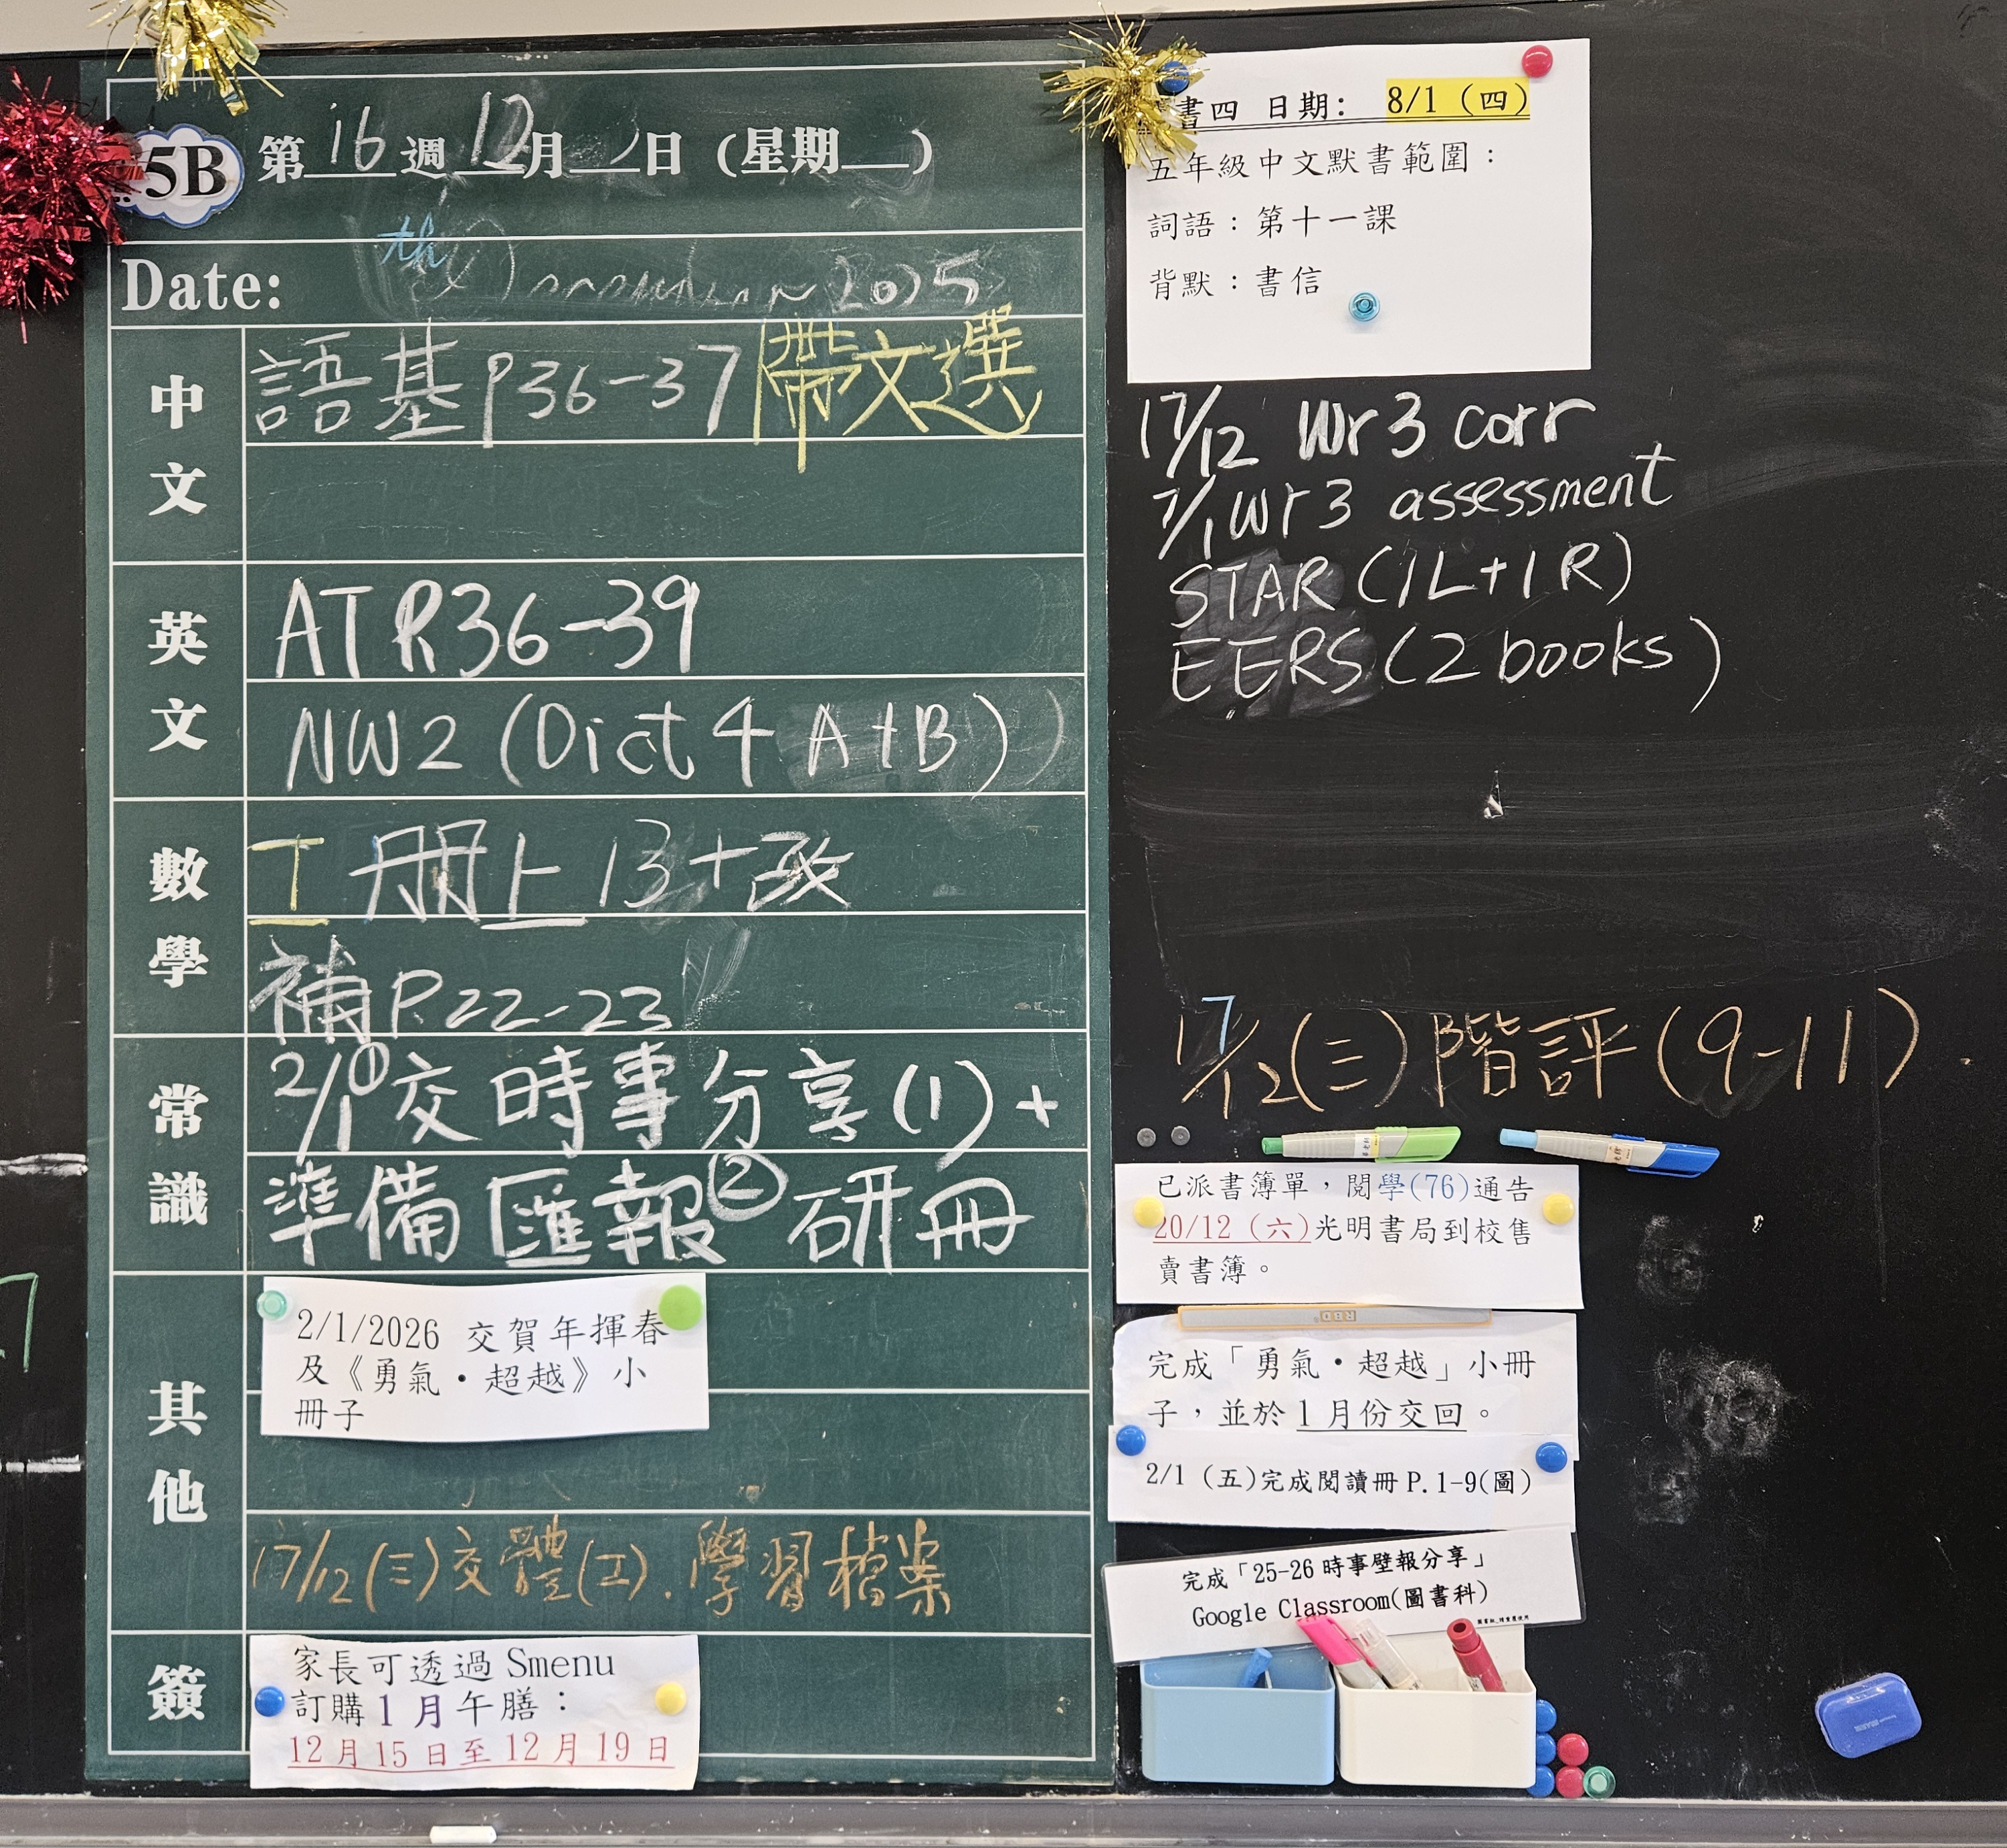 5B 第16週12月 日(星期 )
Date: th 2025
中文
語基P36-37 帶文選
英文
ATR36-39
NW2 (Dict 4 A+B)
數學
T 冊上 13+改
補P.22-23
常識
2/1①交時事分享(1)+
準備匯報②研冊
其他
2/1/2026 交賀年揮春
及《勇氣·超越》小
冊子
17/12(三)交體(工).學習檔案
簽
家長可透過 Smenu
訂購1月午膳:
12月15日至12月19日
書四 日期: 8/1 (四)
五年級中文默書範圍:
詞語:第十一課
背默:書信
17/12 Wr 3 corr
7/1 Wr 3 assessment
STAR (1L+1R)
EERS (2 books)
17/12(三)階評(9-11).
已派書簿單,閱學(76)通告
20/12 (六)光明書局到校售
賣書簿。
完成「勇氣·超越」小冊
子,並於1月份交回。
2/1 (五)完成閱讀冊P.1-9(圖)
完成「25-26時事壁報分享」
Google Classroom(圖書科)